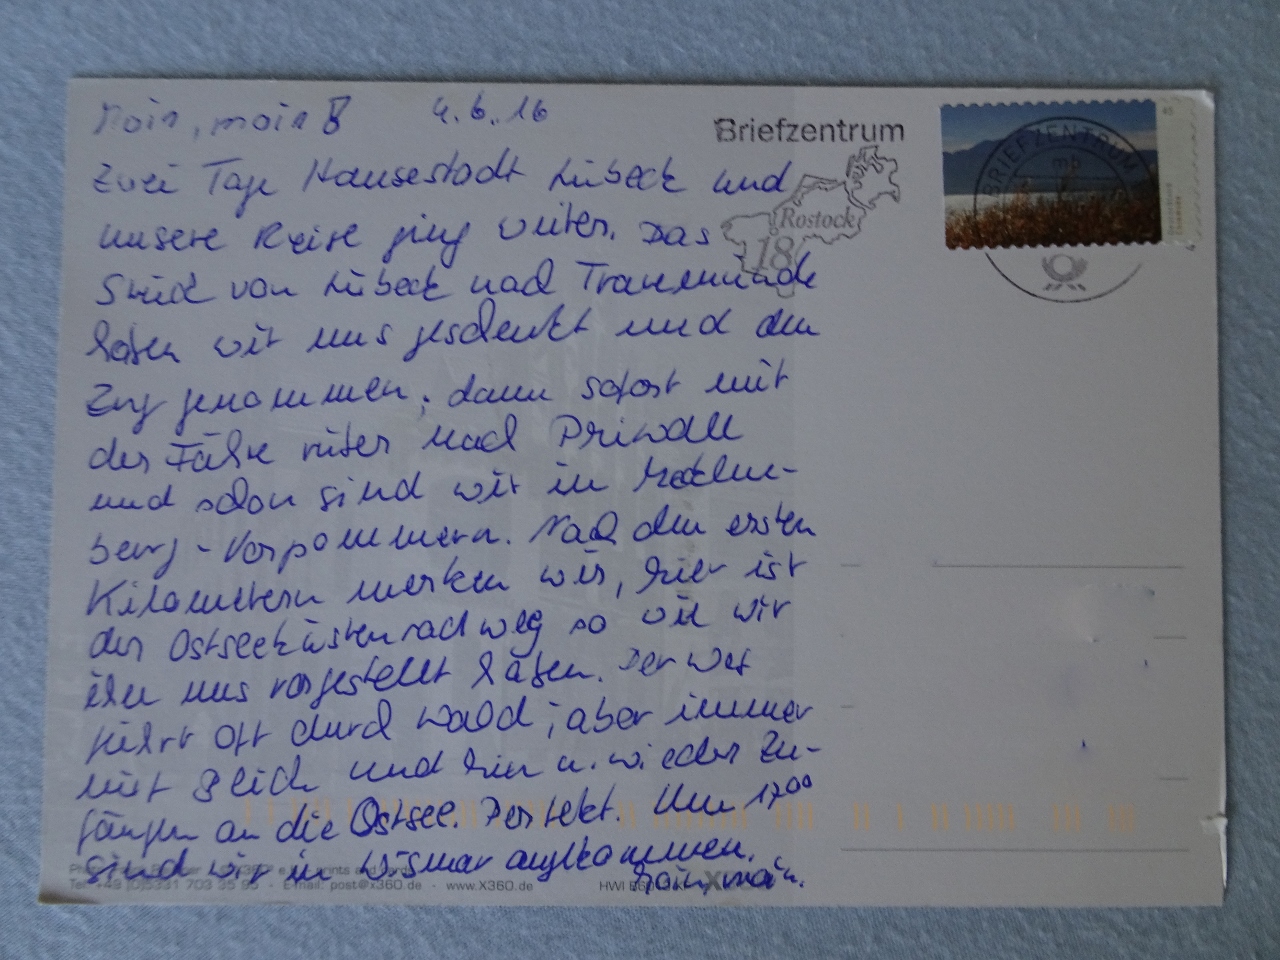 Moin, moin! 4.6.16
Zwei Tage Hansestadt Lübeck und
unsere Reise ging weiter. Das
Stück von Lübeck nach Travemünde
haben wir uns geschenkt und den
Zug genommen, dann sofort mit
der Fähre rüber nach Priwall
und schon sind wir in Mecklen-
berg-Vorpommern. Nach den ersten
Kilometern merken wir, hier ist
der Ostseeküstenradweg so wie wir
ihn uns vorgestellt haben. Der Weg
führt oft durch Wald, aber immer
mit Blick und hin u. wieder Zu-
gängen an die Ostsee. Perfekt. Um 17.00
sind wir in Wismar angekommen.
Moin, moin.
Briefzentrum
Rostock
18
BRIEFZENTRUM
mb
45
E-mail: post@x360.de - www.X360.de
HWI